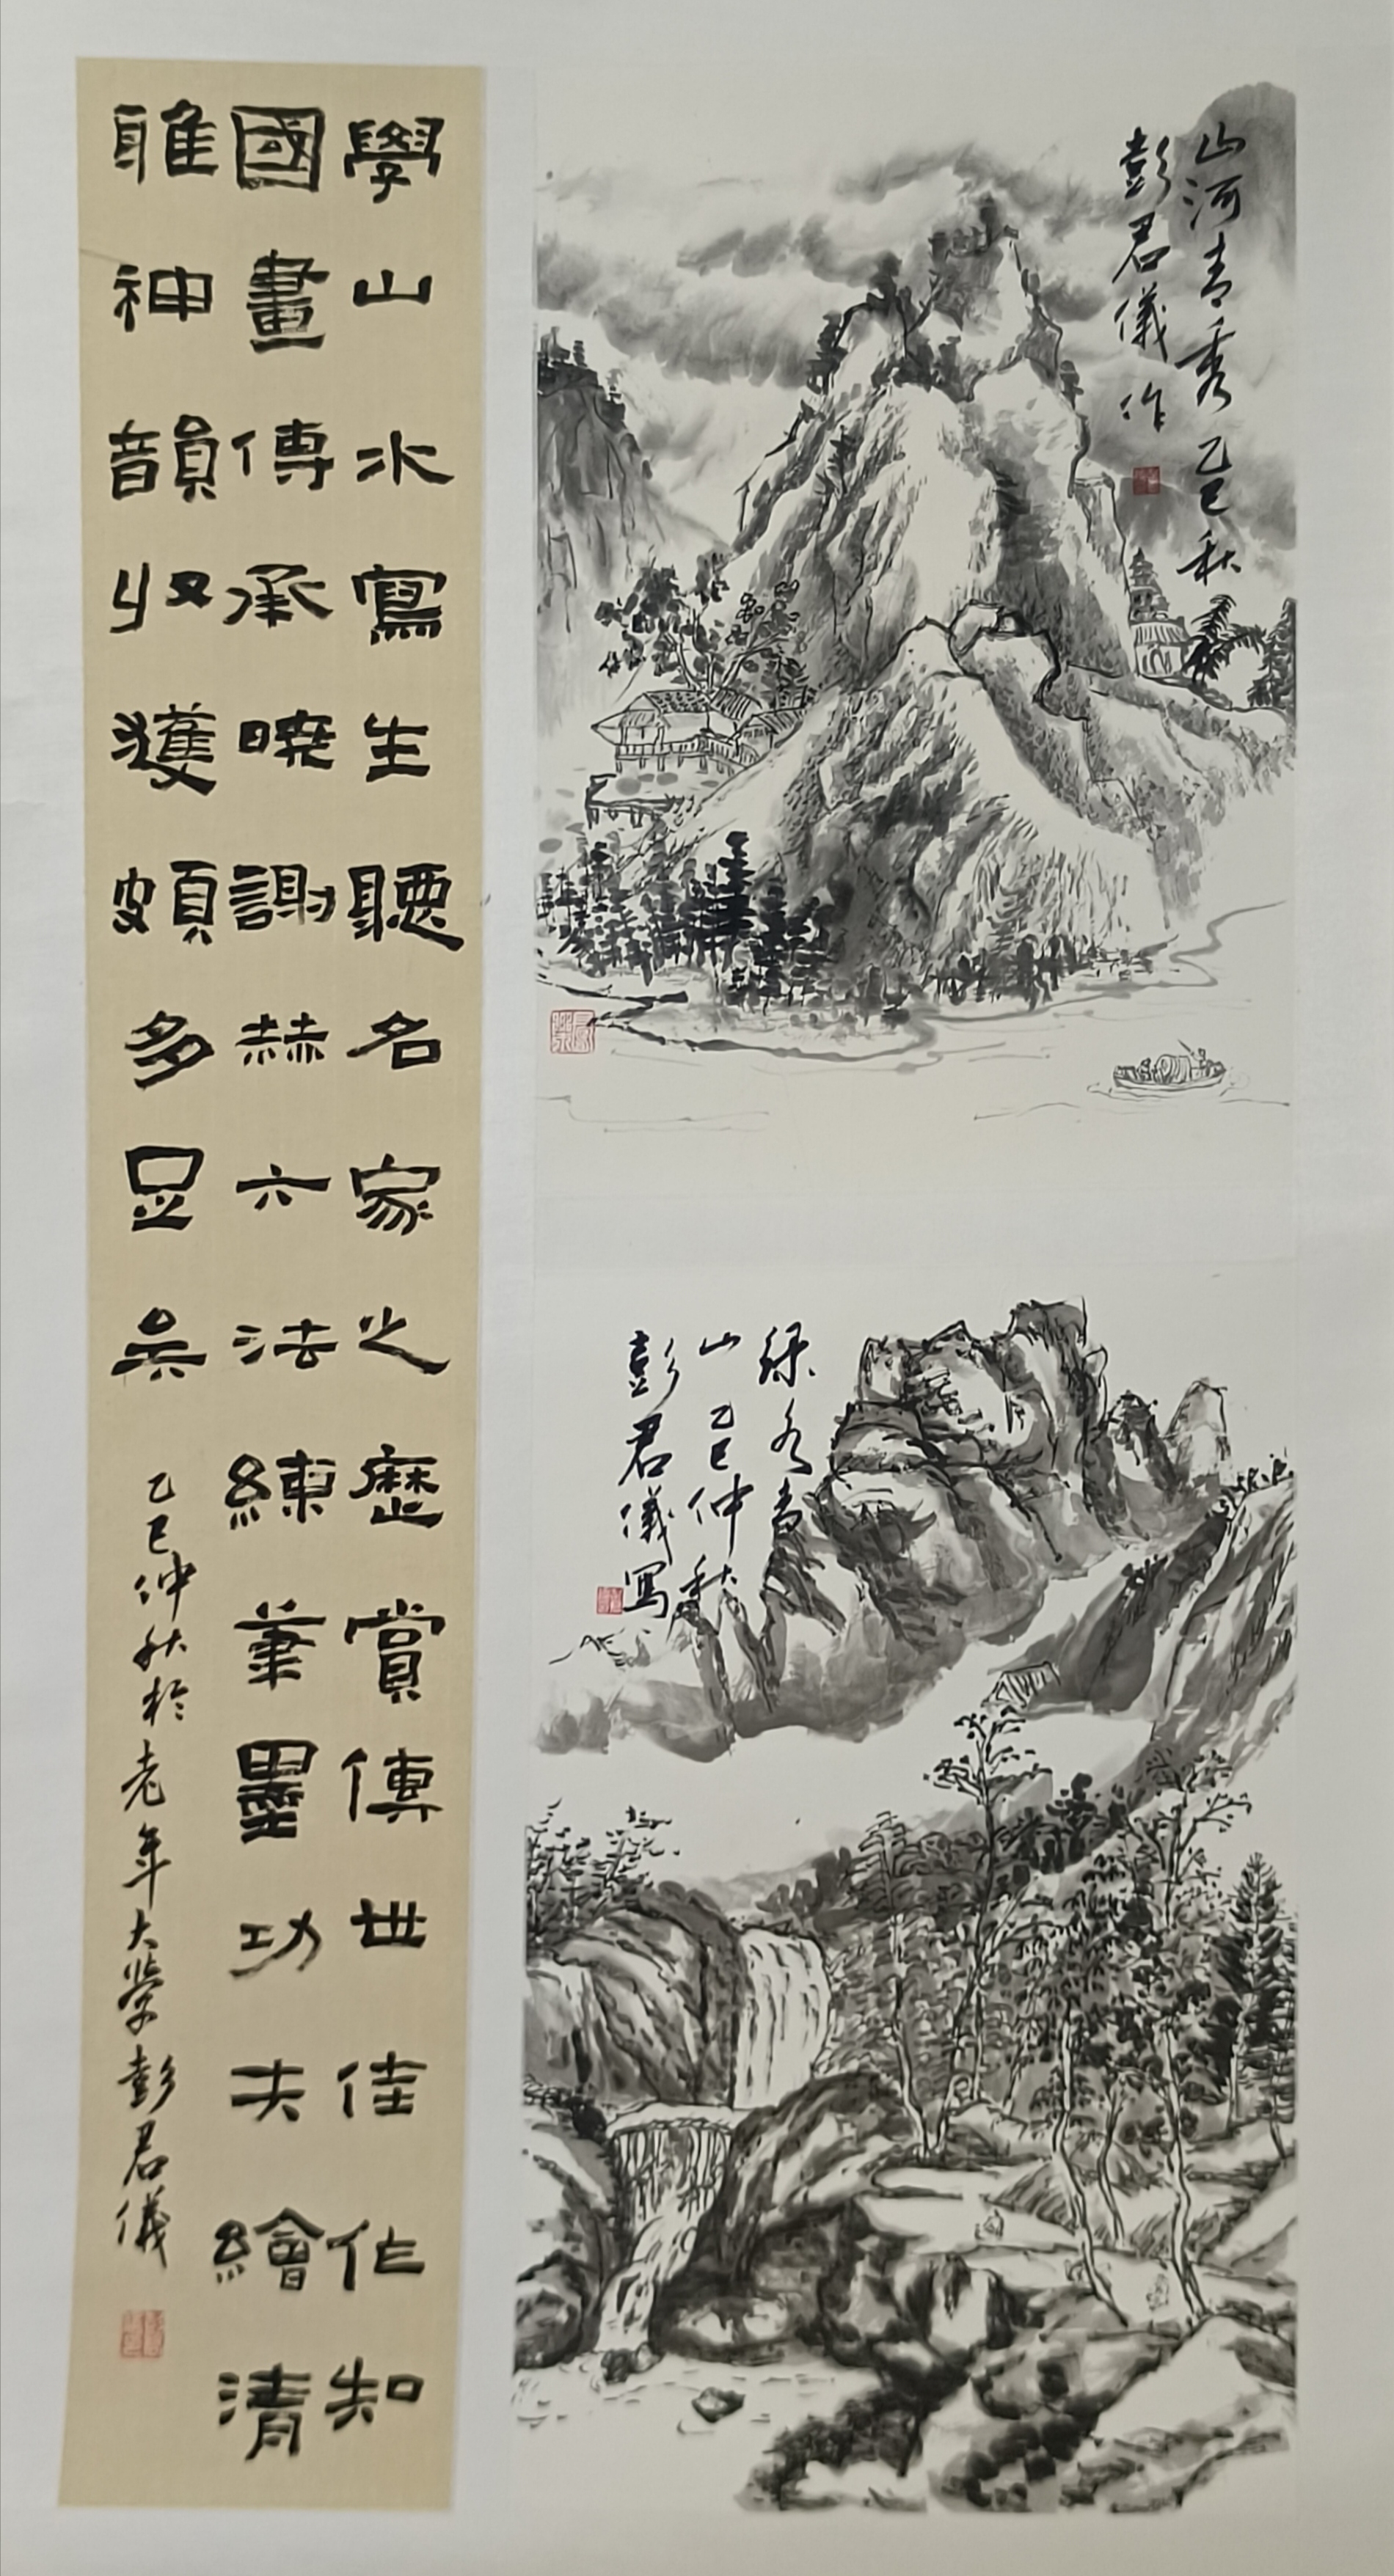 山河青秀 乙巳秋
彭君儀作
绿水青
山 乙巳仲秋
彭君儀寫
學山水寫生聽名家之歷賞傳世佳作知
國畫傳承曉謝赫六法練筆墨功夫繪清
雅神韻收獲頗多足矣 乙巳仲秋於老年大學彭君儀